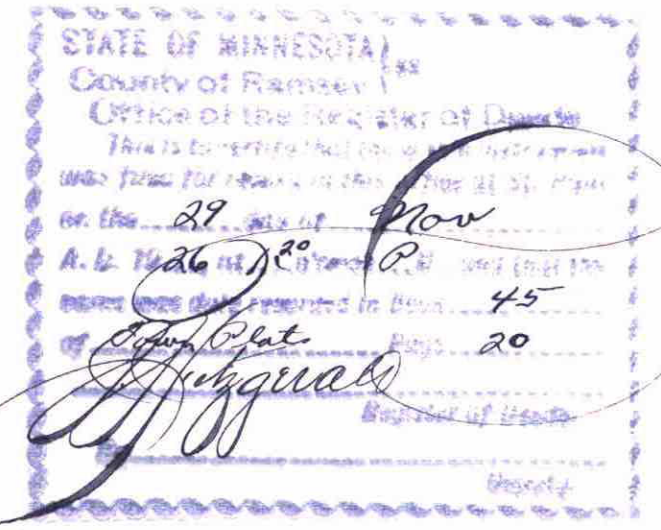 STATE OF MINNESOTA } ss
County of Ramsey
Office of the Register of Deeds
This is to certify that the within
was filed for record in this office at St. Paul
on the 29 day of Nov
A. D. 1926 at 20 o'clock P. M. and that the
same was duly recorded in Book 45
of Town Plats Page 20
Fitzgerald
Register of Deeds
Deputy